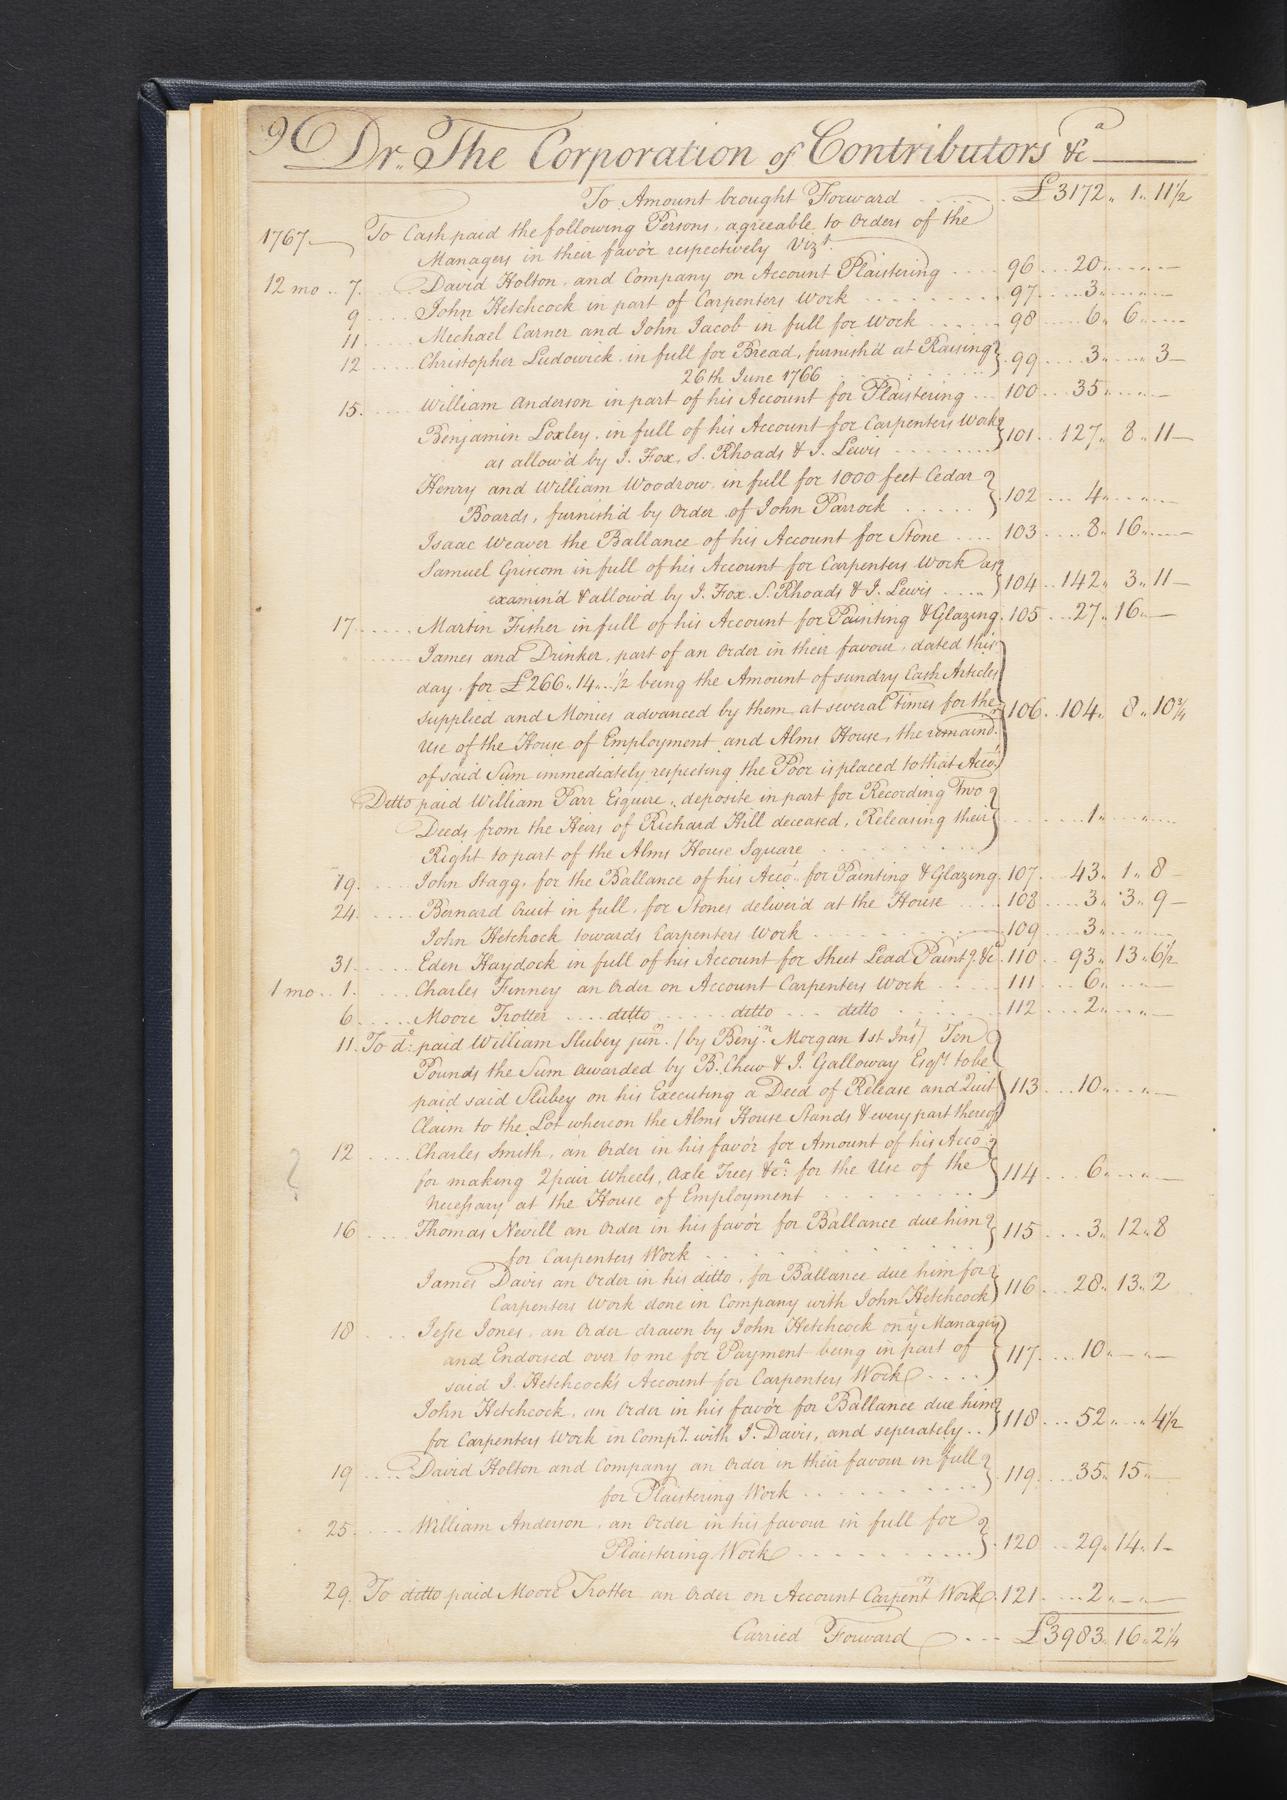 96 Dr.. The Corporation of Contributors &cª
To Amount brought Forward . . . . . £3172.. 1.. 11½
1767. To Cash paid the following Persons, agreeable to Orders of the
Managers in their favor respectively Vizt.
12 mo .. 7. . . . David Holton, and Company on Account Plaistering . . . . 96 . . . 20.. — .. —
9 . . . . John Hetchcock in part of Carpenters Work . . . . . 97 . . . 3.. — .. —
11 . . . . Mechael Carner and John Jacob in full for Work . . . . . 98 . . . 6.. 6.. —
12 . . . . Christopher Ludowick, in full for Bread, furnish'd at Raising } 99 . . . 3.. — .. 3 —
26th June 1766 . . . . .
15. . . . William Anderson in part of his Account for Plaistering . . . 100 . . . 35.. — .. —
Benjamin Loxley, in full of his Account for Carpenters Work } 101 . . 127.. 8.. 11 —
as allow'd by J. Fox, S. Rhoads & J. Lewis . . . . .
Henry and William Woodrow, in full for 1000 feet Cedar } 102 . . . 4.. — .. —
Boards, furnish'd by Order of John Parrock . . . . .
Isaac Weaver the Ballance of his Account for Stone . . . . 103 . . . 8.. 16.. —
Samuel Griscom in full of his Account for Carpenters Work as } 104 . . 142.. 3.. 11 —
examin'd & allow'd by J. Fox. S. Rhoads & J. Lewis . . . . .
17. . . . Martin Fisher in full of his Account for Painting & Glazing. 105 . . . 27.. 16.. —
. . . . James and Drinker, part of an Order in their favour, dated this
day, for £266.. 14.. ½ being the Amount of sundry Cash Articles
supplied and Monies advanced by them, at several Times for the } 106 . . 104.. 8.. 10¾
use of the House of Employment and Alms House, the remaind.r
of said Sum immediately respecting the Poor is placed to that Acco.t
Ditto paid William Parr Esquire, deposite in part for Recording Two
Deeds from the Heirs of Richard Hill deceased, Releasing their } . . . . 1.. — .. —
Right to part of the Alms House Square . . . . .
19. . . . John Stagg, for the Ballance of his Acco.t for Painting & Glazing. 107 . . . 43.. 1.. 8 —
24. . . . Bernard Cruit in full, for Stones deliver'd at the House . . . . 108 . . . 3.. 3.. 9 —
John Hetchock towards Carpenters Work . . . . . 109 . . . 3.. — .. —
31. . . . Eden Haydock in full of his Account for Sheet Lead Paintg. &c.a 110 . . . 93.. 13.. 6½
1 mo .. 1. . . . Charles Finney an Order on Account Carpenters Work . . . . . 111 . . . 6.. — .. —
6. . . . Moore Trotter . . . . ditto . . . . . ditto . . . ditto . . . . . 112 . . . 2.. — .. —
11. To do: paid William Slubey junr. / by Benjn. Morgan 1st Inst/ Ten
Pounds the Sum awarded by B. Chew & J. Galloway Esqrs. to be
paid said Slubey on his Executing a Deed of Release and Quit } 113 . . . 10.. — .. —
Claim to the Lot whereon the Alms House Stands & every part thereof
12 . . . . Charles Smith, an Order in his favor for Amount of his Acco.t
for making 2 pair Wheels, Axle Trees &c.a for the Use of the } 114 . . . 6.. — .. —
Necessary at the House of Employment . . . . .
16 . . . . Thomas Nevill an Order in his favor for Ballance due him } 115 . . . 3.. 12.. 8
for Carpenters Work . . . . .
James Davis an Order in his ditto, for Ballance due him for } 116 . . . 28.. 13.. 2
Carpenters Work done in Company with John Hetchcock
18 . . . . Jesse Jones, an Order drawn by John Hetchcock on ye Managers
and Endorsed over to me for Payment being in part of } 117 . . . 10.. — .. —
said J. Hetchcock's Account for Carpenters Work . . . . .
John Hetchcock, an Order in his favor for Ballance due him } 118 . . . 52.. — .. 4½
for Carpenters Work in Compy. with J. Davis, and seperately . .
19 . . . . David Holton and Company an Order in their favour in full } 119 . . . 35.. 15.. —
for Plaistering Work . . . . .
25. . . . William Anderson, an Order in his favour in full for } 120 . . . 29.. 14.. 1 —
Plaistering Work . . . . .
29. To ditto paid Moore Trotter an Order on Account Carpenters Work. 121 . . . 2.. — .. —
Carried Forward . . . . £3983.. 16.. 2¼